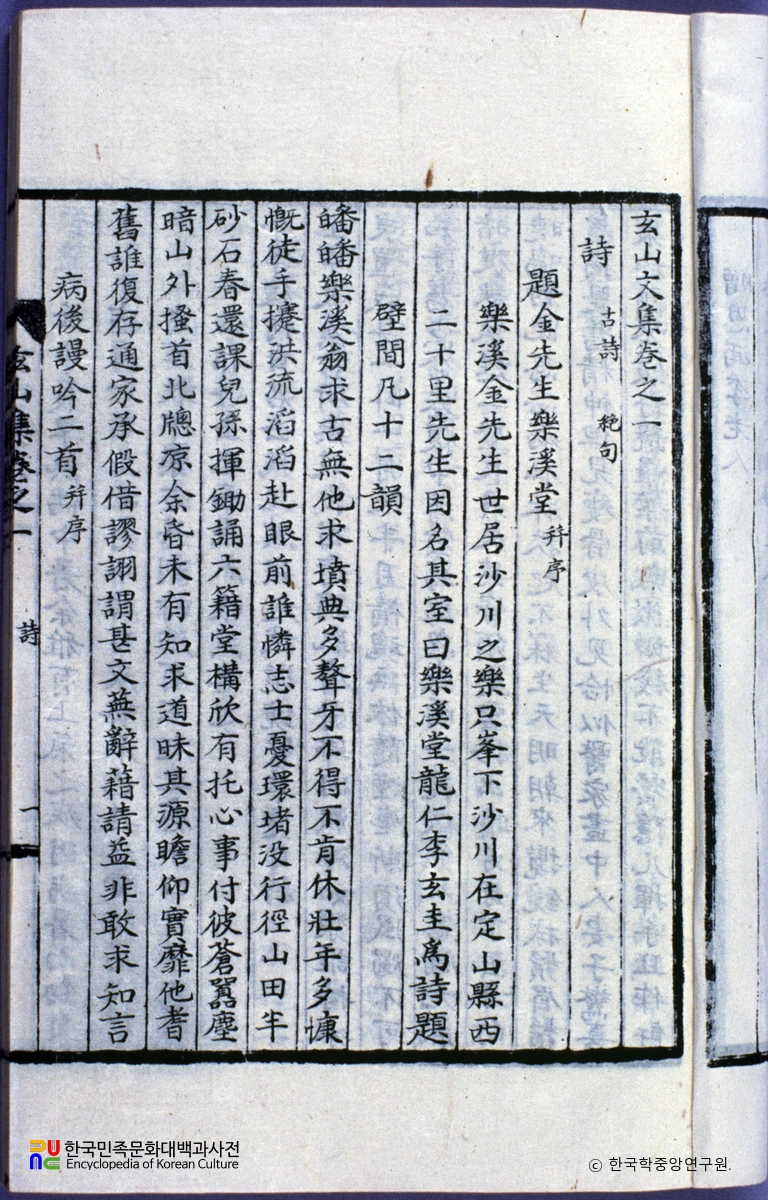 玄山文集卷之一
詩 古詩 絶句
題金先生樂溪堂 幷序
樂溪金先生世居沙川之樂只峯下沙川在定山縣西
二十里先生因名其室曰樂溪堂龍仁李玄圭爲詩題
壁間凡十二韻
皤皤樂溪翁求古無他求墳典多聱牙不得不肯休壯年多慷
慨徒手攓洪流滔滔赴眼前誰憐志士憂環堵没行徑山田半
砂石春還課兒孫揮鋤誦六籍堂構欣有托心事付彼蒼囂塵
暗山外搔首北牕凉余昏未有知求道昧其源瞻仰實靡他耆
舊誰復存通家承假借謬詡謂甚文蕪辭藉請益非敢求知言
病後謾吟二首 幷序
玄山集卷之一
詩
一
한국민족문화대백과사전
Encyclopedia of Korean Culture
© 한국학중앙연구원.